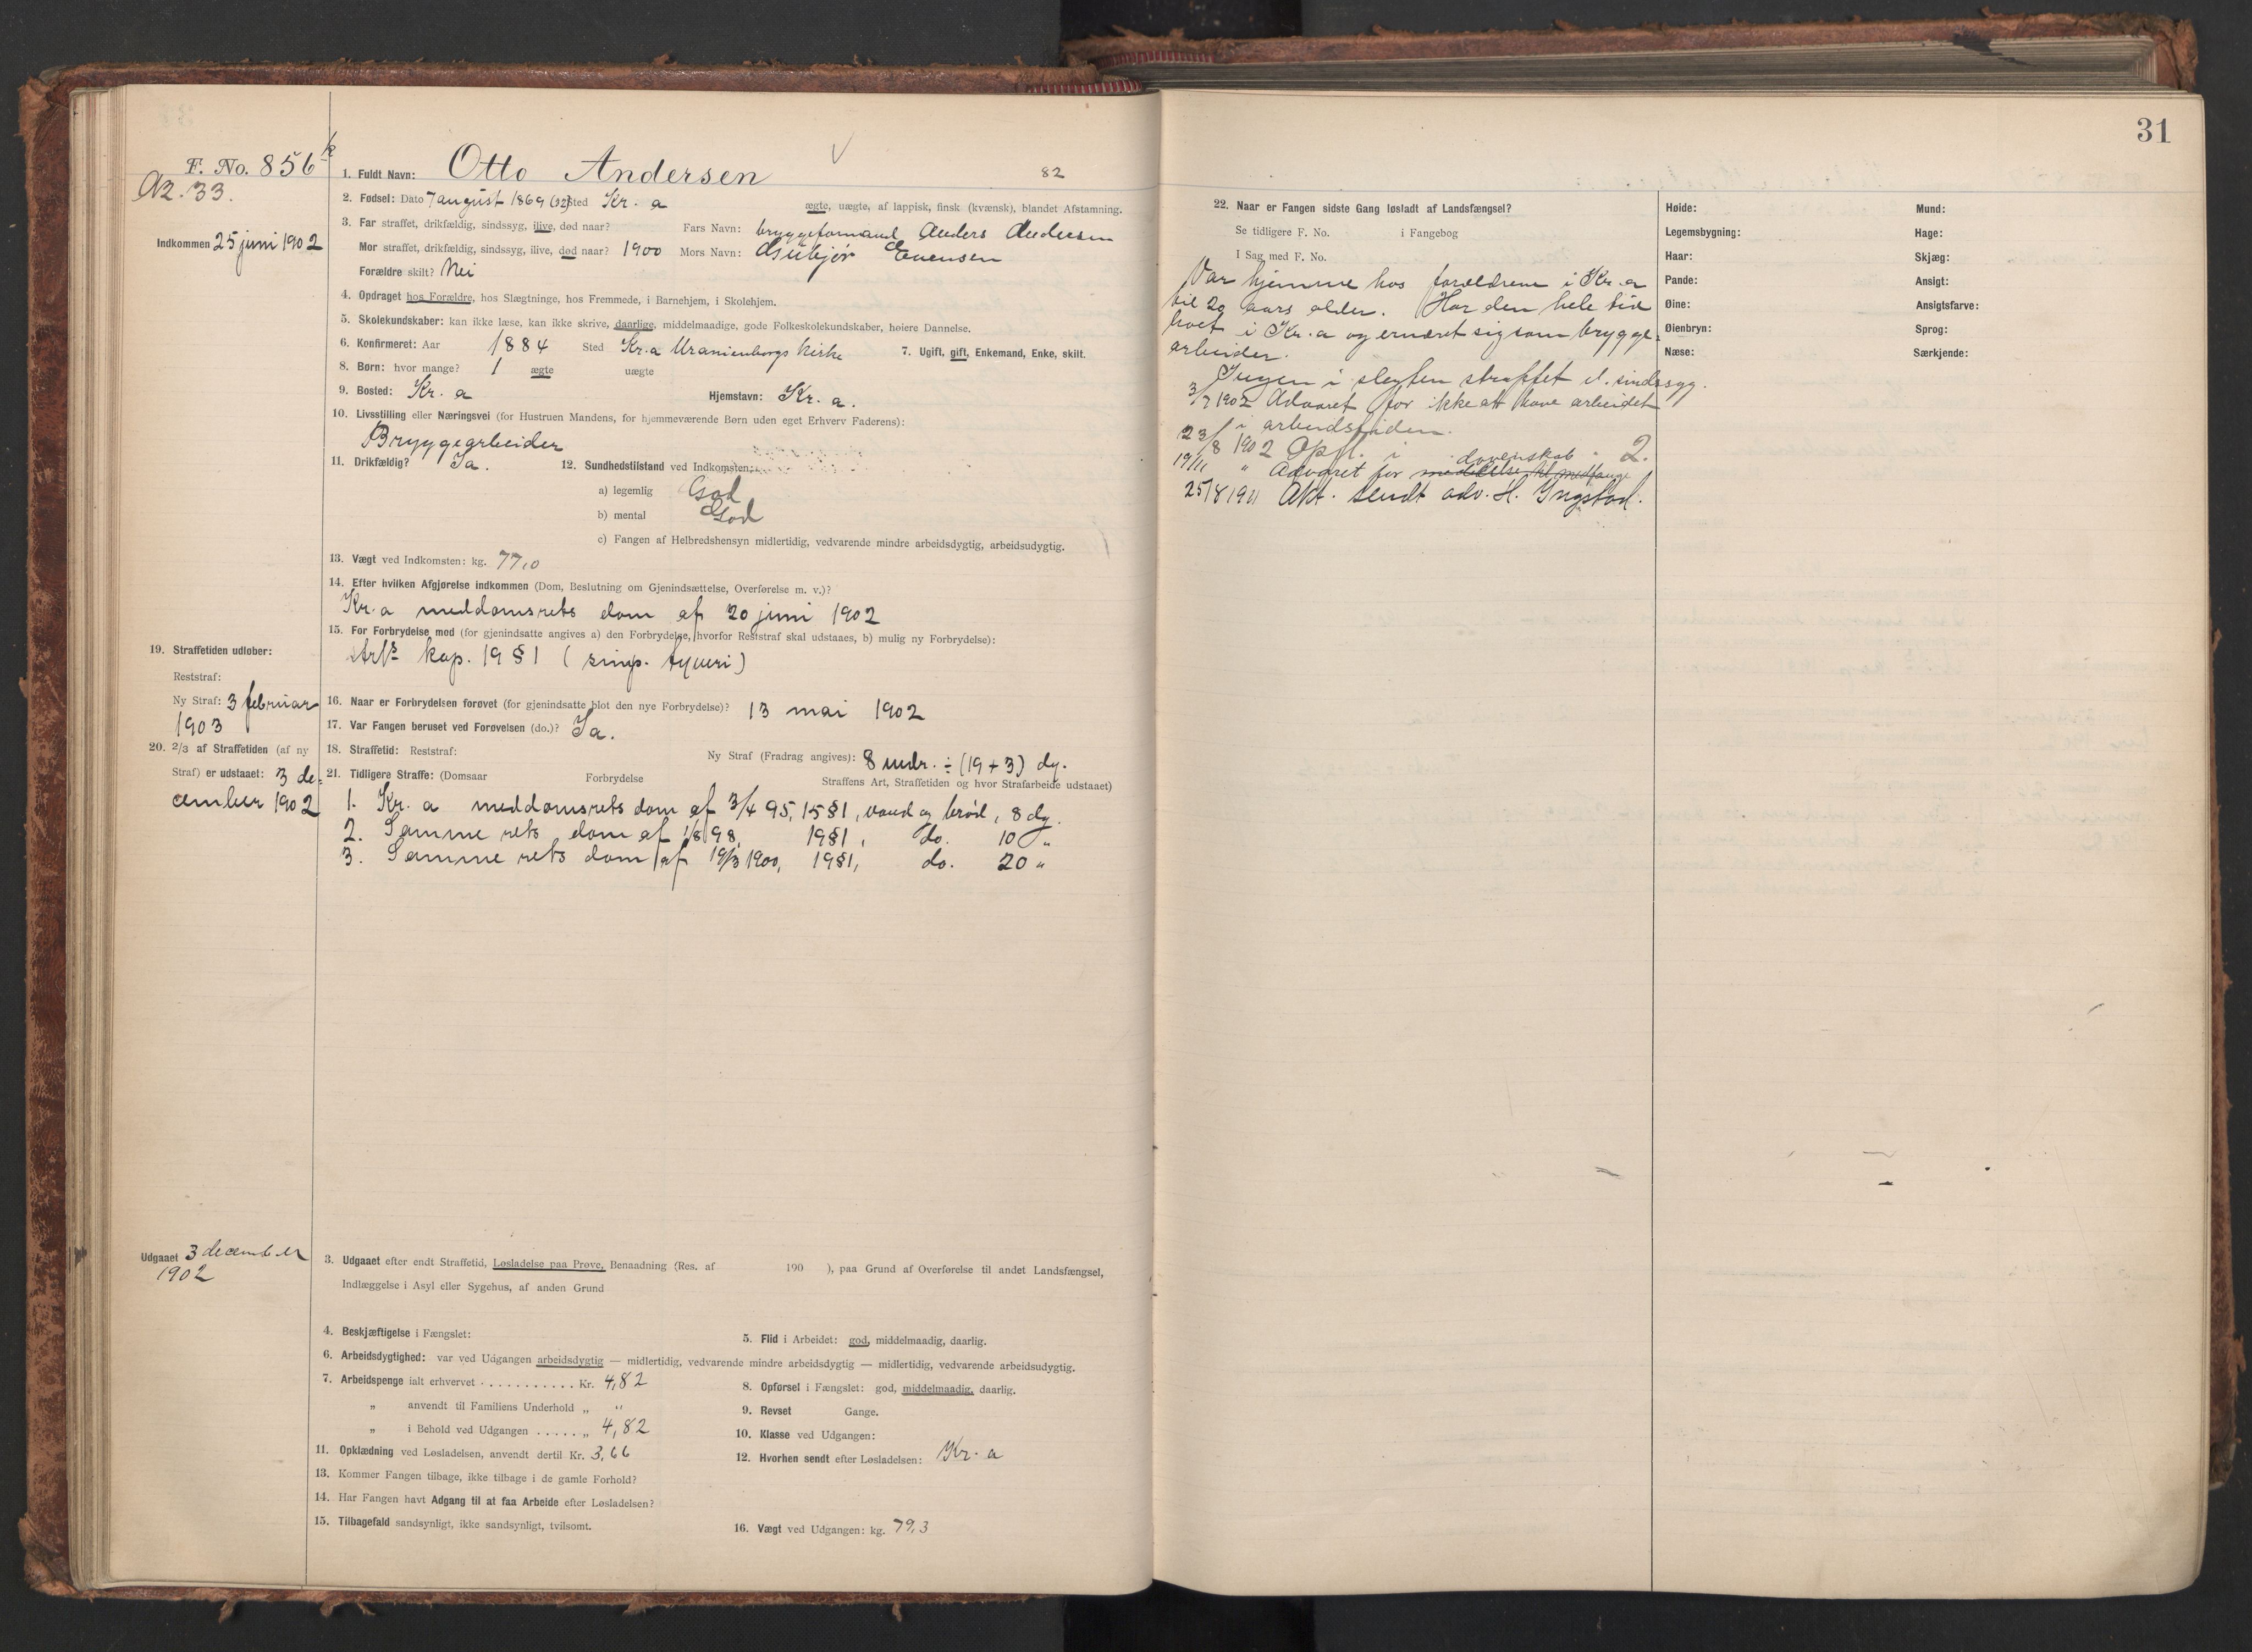 31
F. No. 856
A2. 33.
Indkommen 25 juni 1902
1. Fuldt Navn: Otto Andersen 82
2. Fødsel: Dato 7 august 1869 (32) Sted Kr.a ægte, uægte, af lappisk, finsk (kvænsk), blandet Afstamning.
3. Far straffet, drikfældig, sindssyg, ilive, død naar? Fars Navn: bryggeformand Anders Andersen
Mor straffet, drikfældig, sindssyg, ilive, død naar? 1900 Mors Navn: Gubjør Evensen
Forældre skilt? Nei
4. Opdraget hos Forældre, hos Slægtninge, hos Fremmede, i Barnehjem, i Skolehjem.
5. Skolekundskaber: kan ikke læse, kan ikke skrive, daarlige, middelmaadige, gode Folkeskolekundskaber, høiere Dannelse.
6. Konfirmeret: Aar 1884 Sted Kr.a Uranienborgs kirke 7. Ugift, gift, Enkemand, Enke, skilt.
8. Børn: hvor mange? 1 ægte uægte
9. Bosted: Kr.a Hjemstavn: Kr.a.
10. Livsstilling eller Næringsvei (for Hustruen Mandens, for hjemmeværende Børn uden eget Erhverv Faderens):
Bryggearbeider
11. Drikfældig? Ja. 12. Sundhedstilstand ved Indkomsten:
a) legemlig God
b) mental God
c) Fangen af Helbredshensyn midlertidig, vedvarende mindre arbeidsdygtig, arbeidsudygtig.
13. Vægt ved Indkomsten: kg. 77,0
14. Efter hvilken Afgjørelse indkommen (Dom, Beslutning om Gjenindsættelse, Overførelse m. v.)?
Kr.a meddomsrets dom af 20 juni 1902
15. For Forbrydelse mod (for gjenindsatte angives a) den Forbrydelse, hvorfor Reststraf skal udstaaes, b) mulig ny Forbrydelse):
kap. 19 § 1 (simp. tyveri)
16. Naar er Forbrydelsen forøvet (for gjenindsatte blot den nye Forbrydelse)? 13 mai 1902
17. Var Fangen beruset ved Forøvelsen (do.)? Ja.
18. Straffetid: Reststraf: Ny Straf (Fradrag angives): 8 mdr. ÷ (19 + 3) dg.
19. Straffetiden udløber:
Reststraf:
Ny Straf: 3 februar
1903
20. 2/3 af Straffetiden (af ny
Straf) er udstaaet: 3 de=
cember 1902
21. Tidligere Straffe: (Domsaar Forbrydelse Straffens Art, Straffetiden og hvor Strafarbeide udstaaet)
1. Kr.a meddomsrets dom af 3/4 95, 15 § 1, vand og brød, 8 dg.
2. Samme rets dom af 1/8 98, 19 § 1, do. 10 "
3. Samme rets dom af 19/3 1900, 19 § 1, do. 20 "
Udgaaet 3 december
1902
3. Udgaaet efter endt Straffetid, Løsladelse paa Prøve, Benaadning (Res. af 190 ), paa Grund af Overførelse til andet Landsfængsel,
Indlæggelse i Asyl eller Sygehus, af anden Grund
4. Beskjæftigelse i Fængslet: 5. Flid i Arbeidet: god, middelmaadig, daarlig.
6. Arbeidsdygtighed: var ved Udgangen arbeidsdygtig — midlertidig, vedvarende mindre arbeidsdygtig — midlertidig, vedvarende arbeidsudygtig.
7. Arbeidspenge ialt erhvervet . . . . . . . . . . . Kr. 4,82 8. Opførsel i Fængslet: god, middelmaadig, daarlig.
" anvendt til Familiens Underhold " " 9. Revset Gange.
" i Behold ved Udgangen . . . . . " 4,82 10. Klasse ved Udgangen:
11. Opklædning ved Løsladelsen, anvendt dertil Kr. 3,66 12. Hvorhen sendt efter Løsladelsen: Kr.a
13. Kommer Fangen tilbage, ikke tilbage i de gamle Forhold?
14. Har Fangen havt Adgang til at faa Arbeide efter Løsladelsen?
15. Tilbagefald sandsynligt, ikke sandsynligt, tvilsomt. 16. Vægt ved Udgangen: kg. 79,3
22. Naar er Fangen sidste Gang løsladt af Landsfængsel?
Se tidligere F. No. i Fangebog
I Sag med F. No.
Var hjemme hos forældrene i Kr.a
til 20 aars alder. Har den hele tid
boet i Kr.a og ernæret sig som brygge=
arbeider.
Ingen i slegten straffet el. sindssyg.
3/7 1902 Advaret for ikke at have arbeidet
i arbeidstiden.
23/8 1902 Opfl. i 2.
dovenskab
19/11 " Advaret for meddelelse til medfange
25/8 1911 Akt. sendt adv. H. Ingstad.
Høide: Mund:
Legemsbygning: Hage:
Haar: Skjæg:
Pande: Ansigt:
Øine: Ansigtsfarve:
Øienbryn: Sprog:
Næse: Særkjende: